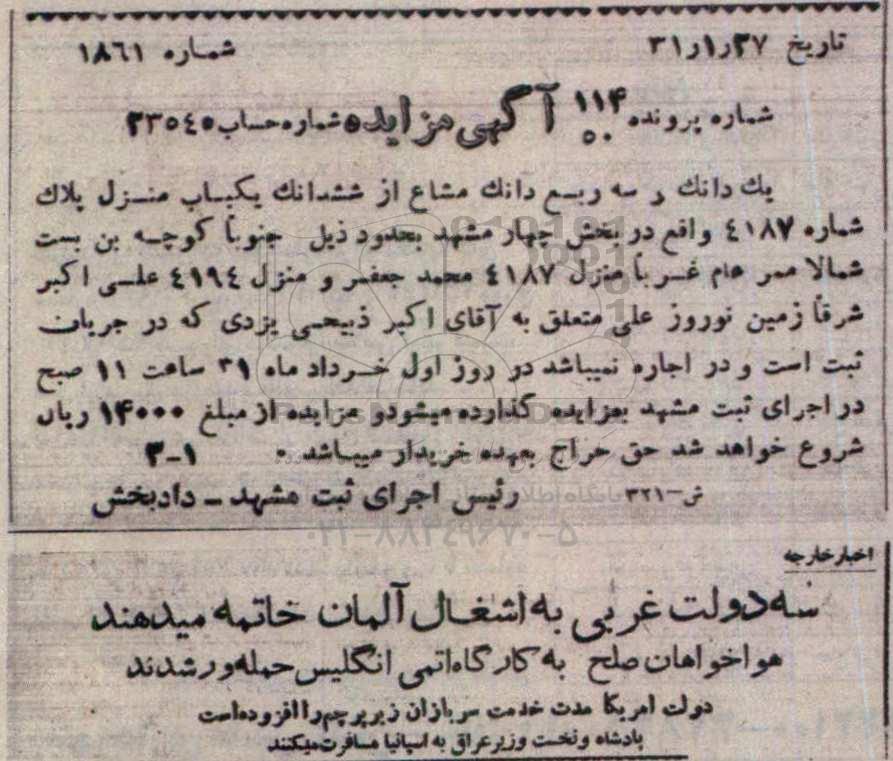 تاریخ ۳۱ر۱ر۲۷ شماره ۱۸۶۱
شماره پرونده ۱۱۴/۵۰ آگهی مزایده شماره حساب ۲۳۵۴۵
یك دانك و سه ربع دانك مشاع از ششدانك یکباب منزل پلاك
شماره ۴۱۸۷ واقع در بخش چهار مشهد بحدود ذیل جنوباً کوچه بن بست
شمالا ممر عام غرباً منزل ۴۱۸۷ محمد جعفر و منزل ۴۱۹۴ علی اکبر
شرقاً زمین نوروز علی متعلق به آقای اکبر ذبیحی یزدی که در جریان
ثبت است و در اجاره نمیباشد در روز اول خرداد ماه ۳۱ ساعت ۱۱ صبح
در اجرای ثبت مشهد بمزایده گذارده میشود و مزایده از مبلغ ۱۴۰۰۰ ریال
شروع خواهد شد حق حراج بعهده خریدار میباشد ۰ ۱-۳
ش-۳۲۱ رئیس اجرای ثبت مشهد - دادبخش
۰۲۱-۸۸۳۴۹۶۷۰-۵
اخبار خارجه
سه دولت غربی به اشغال آلمان خاتمه میدهند
هواخواهان صلح به کارگاه اتمی انگلیس حمله ور شدند
دولت امریکا مدت خدمت سربازان زیر پرچم را افزوده است
پادشاه و نخست وزیر عراق به اسپانیا مسافرت میکنند